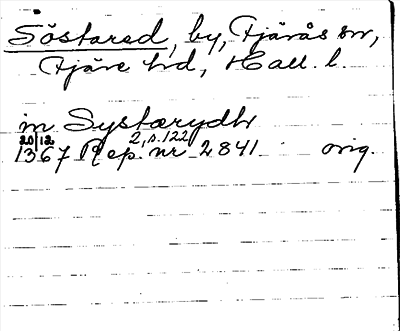 Söstared, by, Fjärås sn,
Fjäre hd, Hall. l.
in Systærydh
20/12 2, s. 122
1367 Rep. nr 2841 orig.